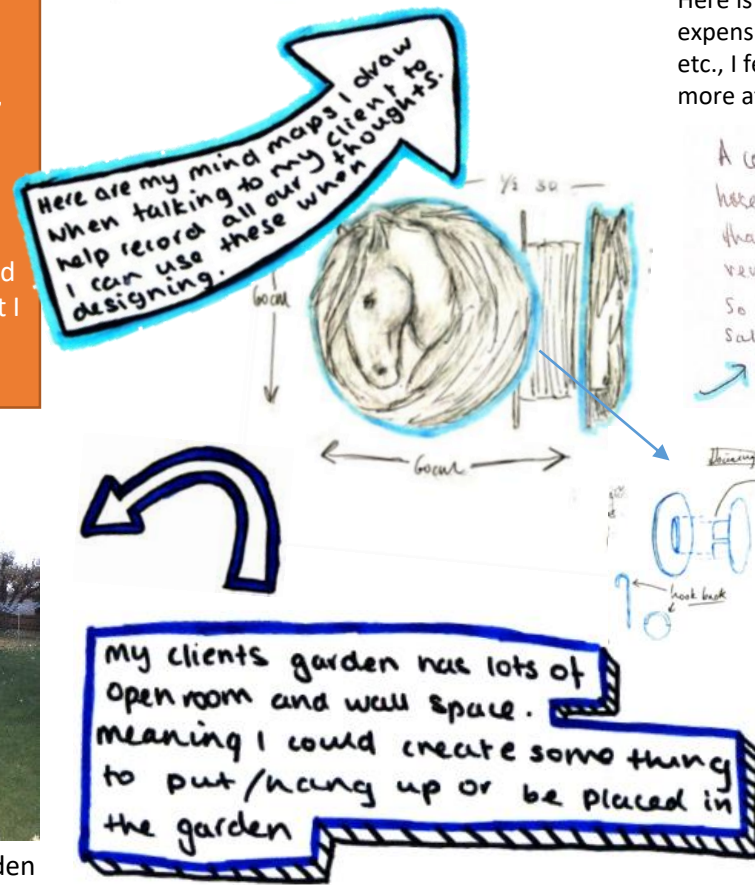 Here are my mind maps I draw
when talking to my client to
help record all our thoughts.
I can use these when
designing.
Here is
expens
etc., I fe
more a
d
t I
60cm
60cm
hook back
my clients garden has lots of
open room and wall space.
meaning I could create some thing
to put/hang up or be placed in
the garden
den